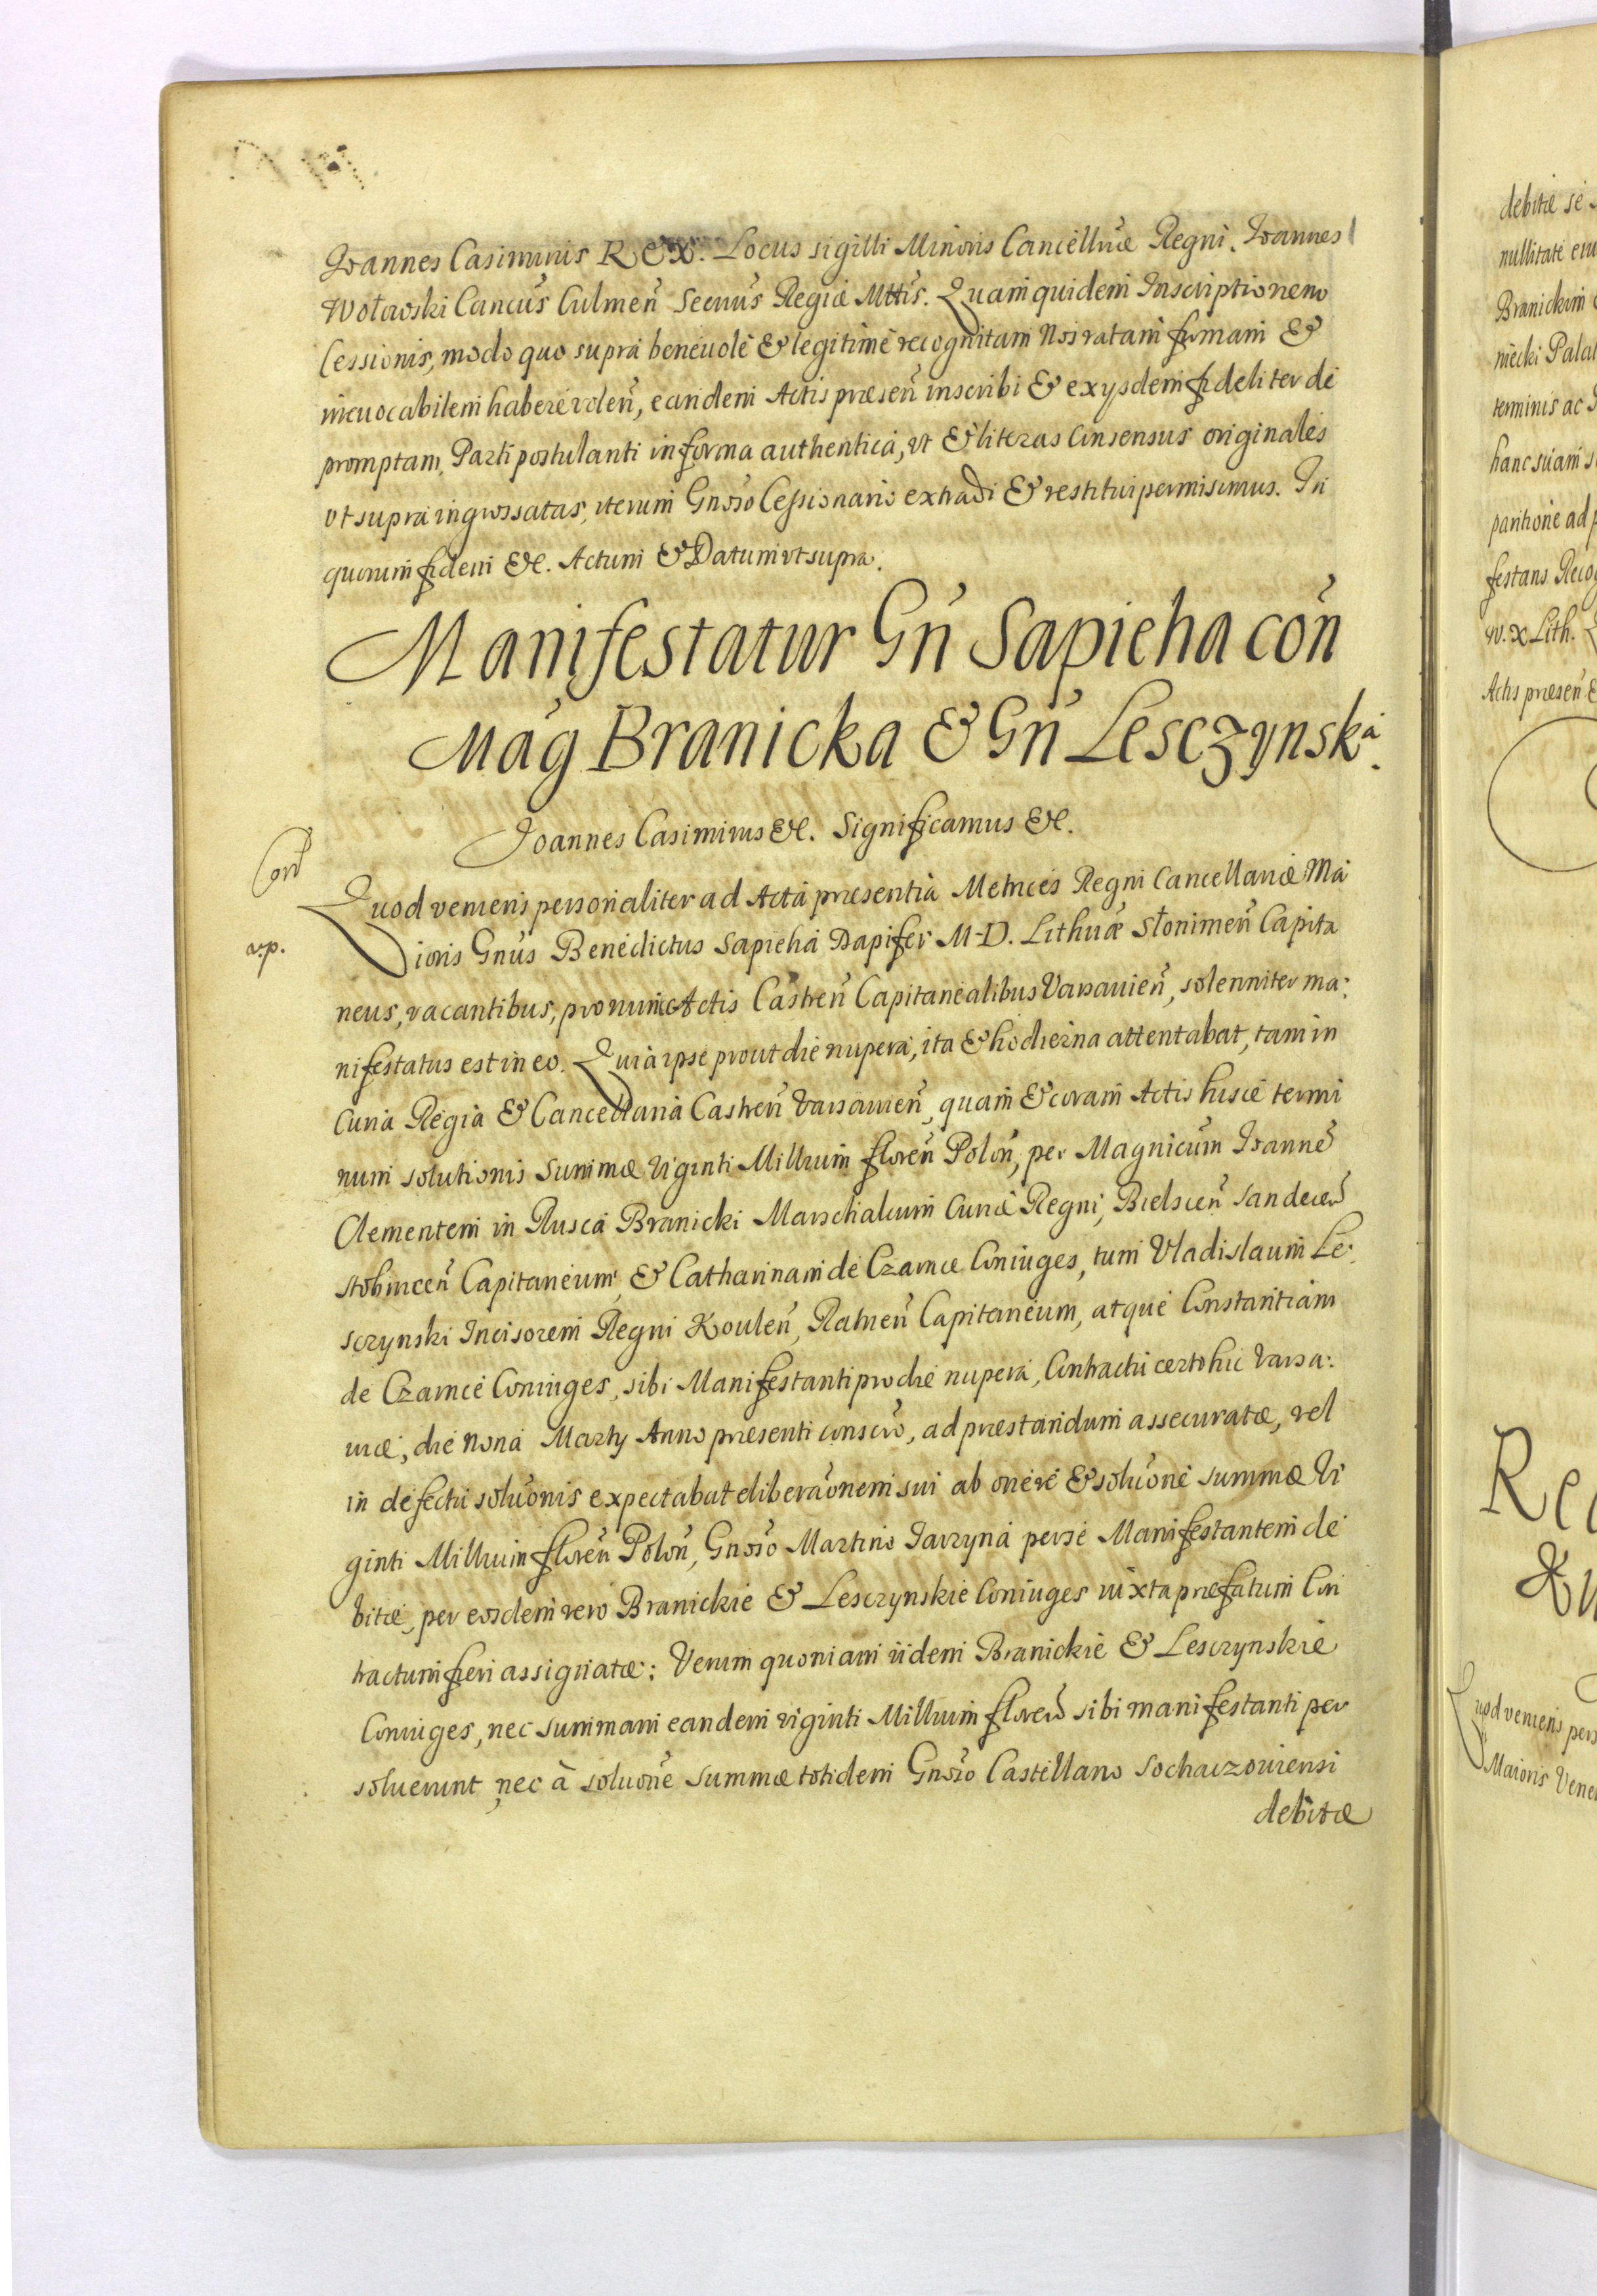 Joannes Casimirus REX. Locus sigilli Minoris Cancellriæ Regni. Joannes
Wołowski Cancus Culmeñ Secrius Regiæ Mttis. Quam quidem Inscriptionem
Cessionis, modo quo supra beneuolè & legitimè recognitam Nos ratam firmam &
irreuocabilem habere voleñ, eandem Actis præseñ inscribi & ex ysdem fideliter de
promptam, Parti postulanti in forma authentica, vt & literas Consensus originales
vt supra ingrossatas, iterum Gnoso Cessionario extradi & restitui permisimus. In
quorum fidem &c. Actum & Datum vt supra.
Manifestatur Gñ Sapieha coñ
Mag Branicka & Gñ Lesczynska.
Joannes Casimirus &c. Significamus &c.
Quod veniens personaliter ad Acta præsentia Metrices Regni Cancellariæ Ma
v.p.
ioris Gnus Benedictus Sapieha Dapifer M. D. Lithuæ Słonimeñ Capita
neus, vacantibus, pro nunc Actis Castreñ Capitanealibus Varsauieñ, solenniter ma:
nifestatus est in eo. Quia ipse prout die nupera, ita & hodierna attentabat, tam in
Curia Regia & Cancellaria Castreñ Varsauieñ, quam & coram Actis hisce termi
num solutionis Summæ Viginti Millium floreñ Poloñ, per Magnicum Joanne
Clementem in Rusca Branicki Marschalcum Curiæ Regni, Bielsceñ Sandeceñ
Stobniceñ Capitaneum, & Catharinam de Czarnca Coniuges, tum Vladislaum Le:
sczynski Incisorem Regni Kouleñ, Ratneñ Capitaneum, atque Constantiam
de Czarnce Coniuges, sibi Manifestanti pro die nupera, Contractu certo hic Varsa:
uiæ, die nona Marty Anno præsenti conscro, ad præstandum assecuratæ, vel
in defectu soluonis expectabat eliberaonem sui ab onere & soluone summæ Vi
ginti Millium floreñ Poloñ, Gnoso Martino Jarzyna per se Manifestantem de
bitæ, per eosdem vero Branickie & Lesczynskie Coniuges iuxta præfatum Con
tractum fieri assignatæ: Verum quoniam iidem Branickie & Lesczynskie
Coniuges, nec summam eandem viginti Millium floreñ sibi manifestanti per
soluerunt, nec à soluone Summæ totidem Gnoso Castellano Sochaczouiensi
debitæ
debitæ se
nullitate eiu
Branickim
niecki Palat
terminis ac
hanc suam s
paritione ad p
festans Recog
Lith.
Actis præseñ &
Quod veniens pers
Maioris Vene